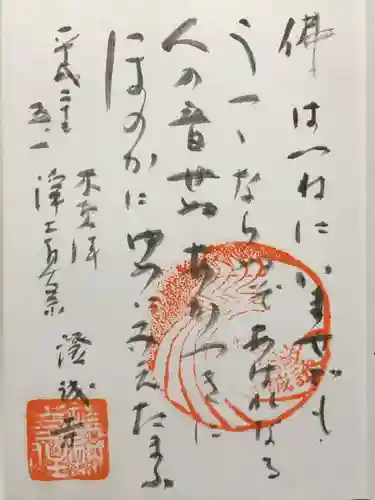 佛はつねにいませども
うつゝならぬぞあはれなる
人の音せぬあかつきに
ほのかにゆめにみえたまふ
平成二十三
五.一
浄土真宗
澄誠寺